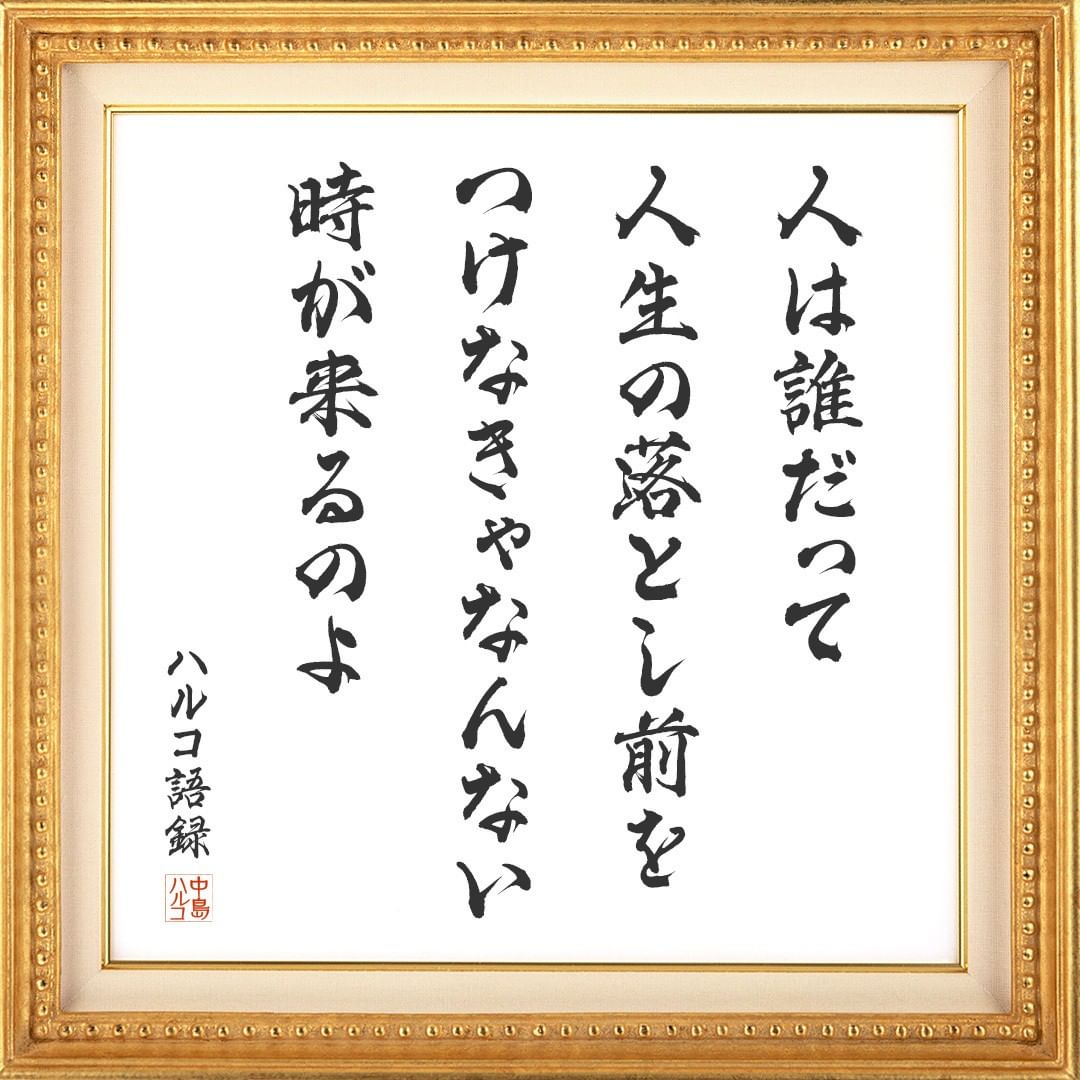 人は誰だって
人生の落とし前を
つけなきゃなんない
時が来るのよ
ハルコ語録
中島
ハルコ